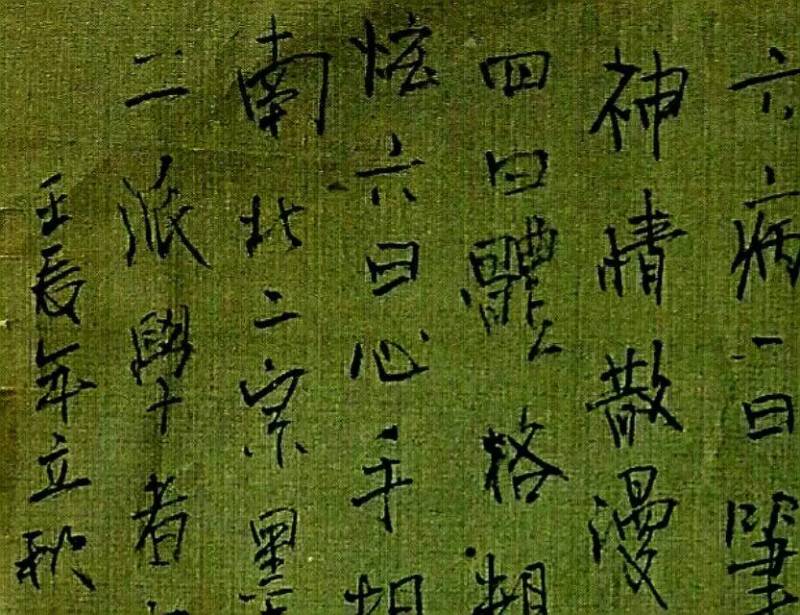 六病一曰筆
神情散漫
四曰體格粗
怪六曰心手相
南北二宗墨
二派學者
壬辰年立秋